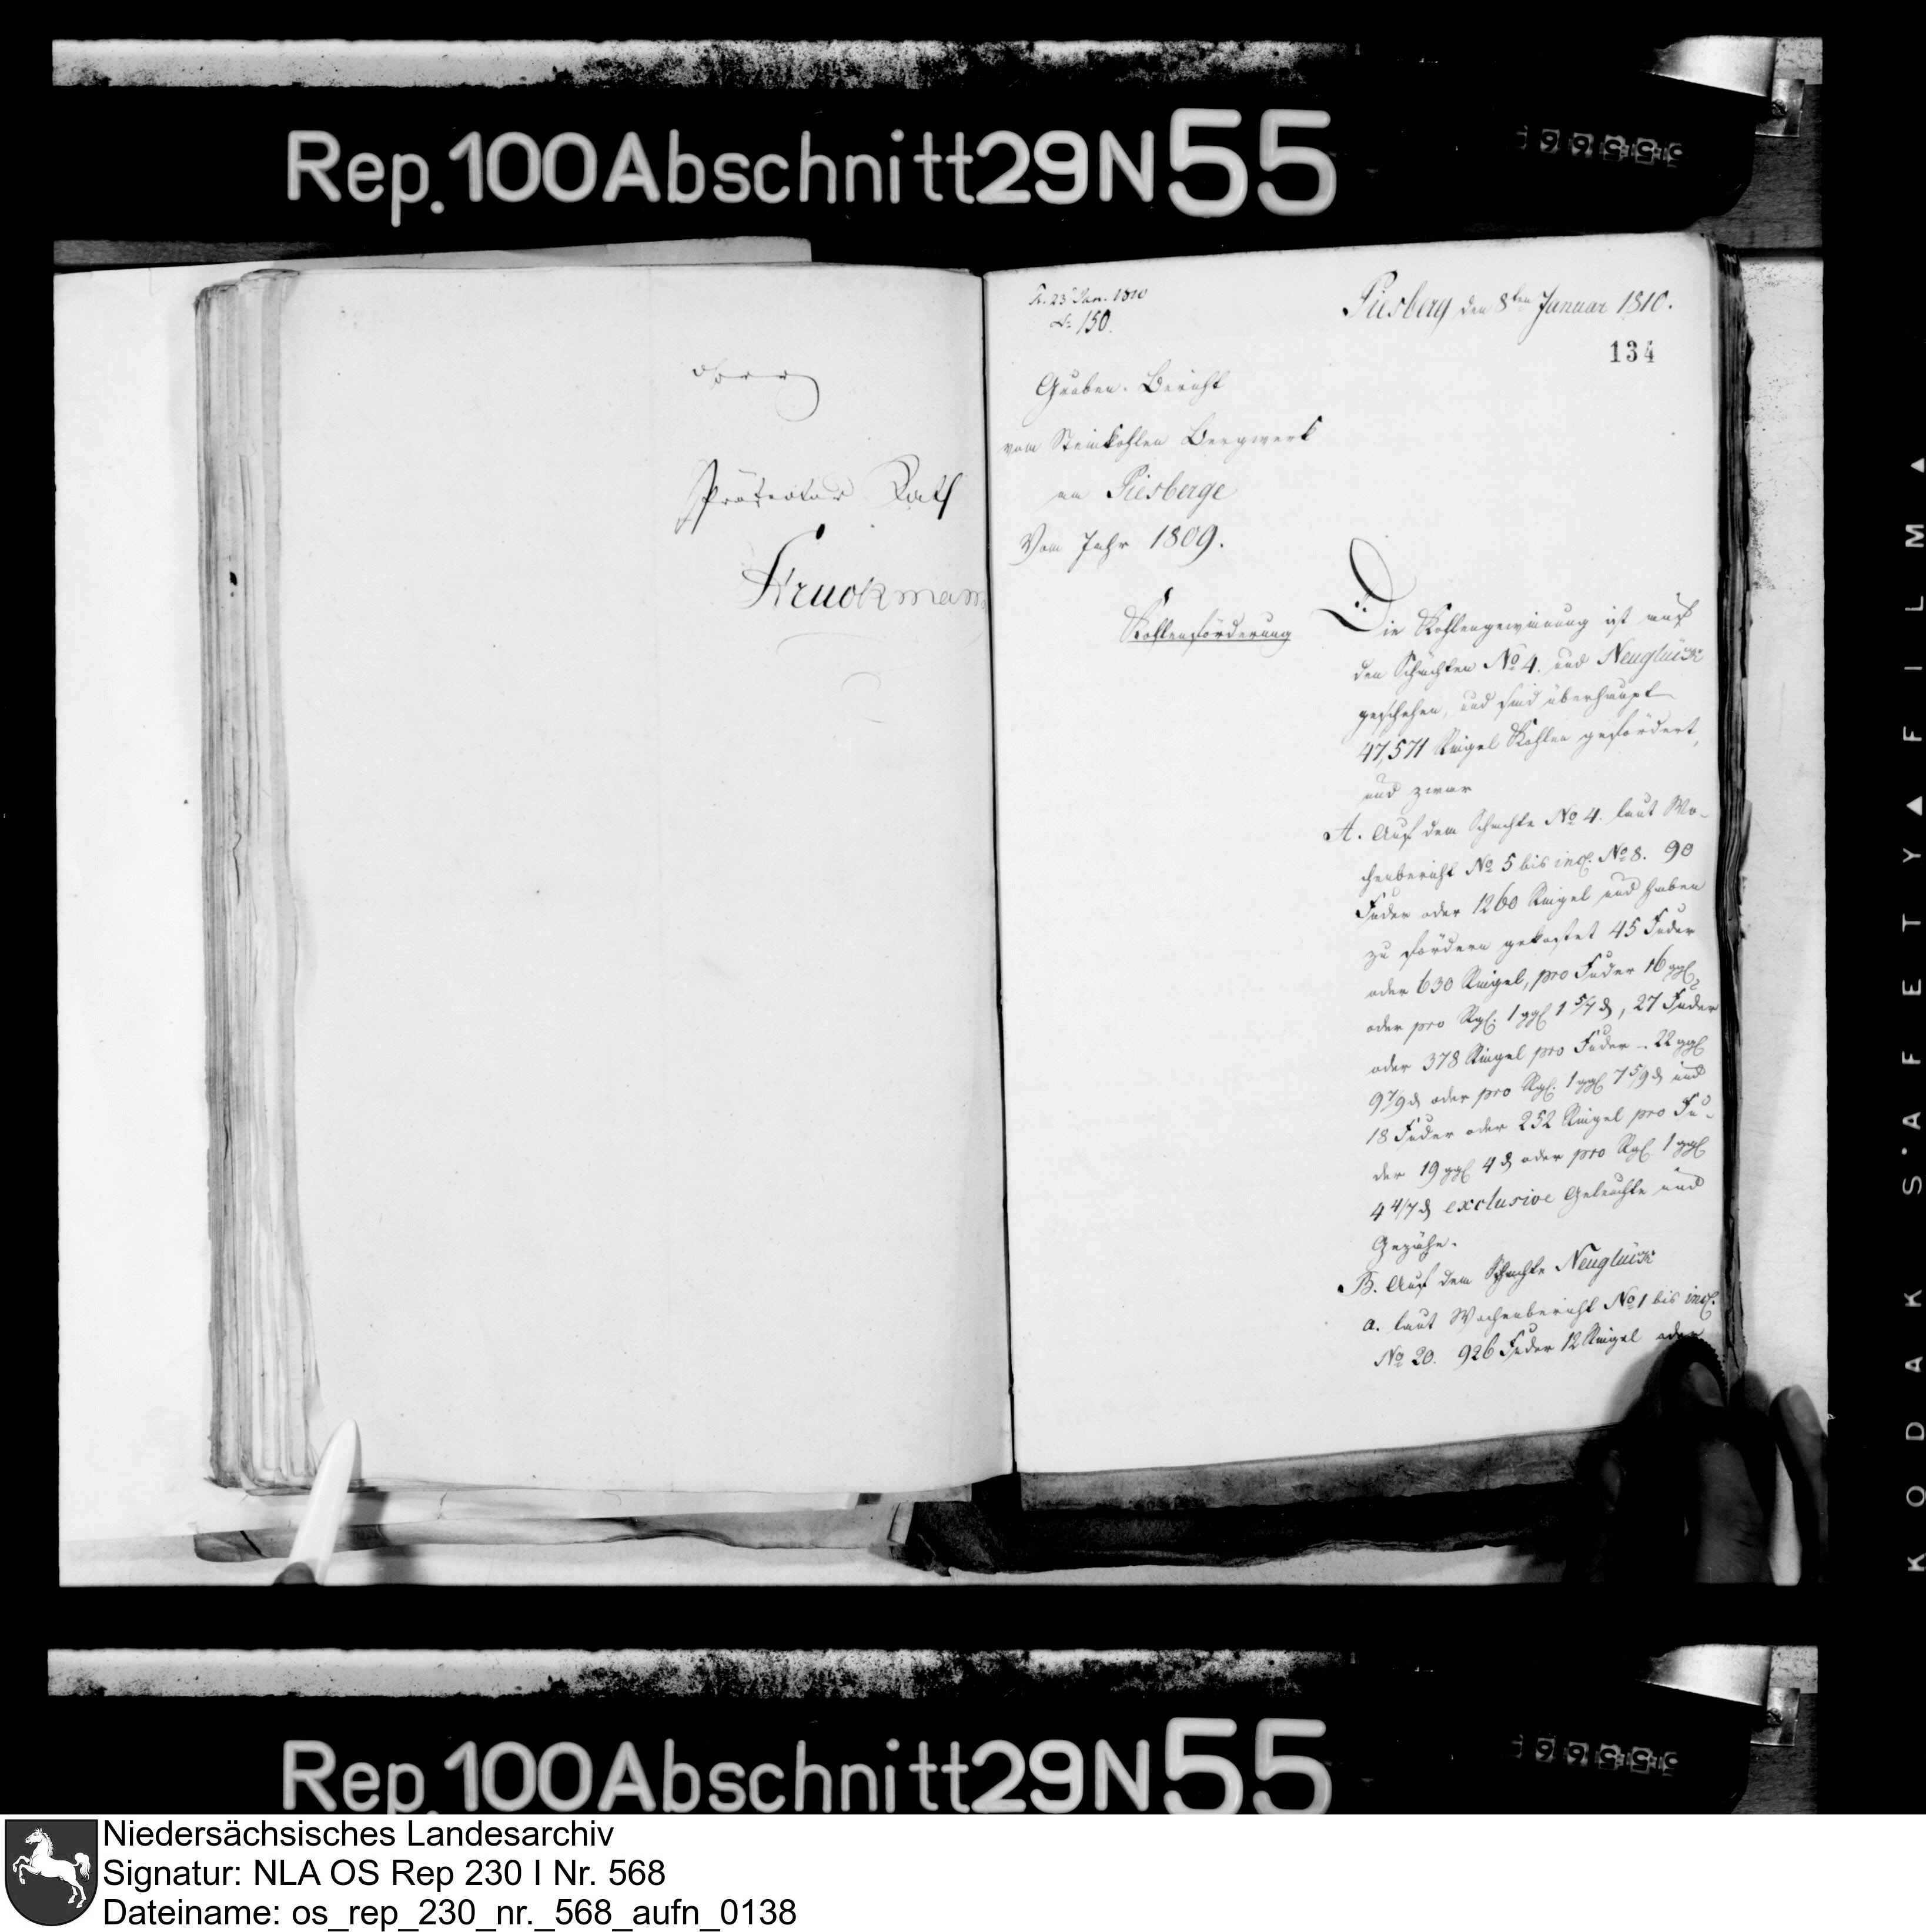 Rep. 100 Abschnitt 29 N 55
Präfectur Rath
Struckmann
Pr. 23 Jan. 1810
No 150.
Piesberg den 8ten Januar 1810.
134
Gruben-Bericht
vom Steinkohlen Bergwerk
am Piesberge
Vom Jahr 1809.
Kohlenförderung
Die Kohlengewinnung ist auf
den Schächten No 4. und Neuglück
geschehen, und sind überhaupt
47,571 Ringel Kohlen gefördert,
und zwar
A. Auf dem Schachte No 4. laut Wo-
chenbericht No 5 bis incl. No 8. 90
Fuder oder 1260 Ringel und haben
zu fördern gekostet 45 Fuder
oder 630 Ringel, pro Fuder 16 ggl,
oder pro Rgl. 1 ggl 1 5/7 d, 27 Fuder
oder 378 Ringel pro Fuder - 22 ggl
9 7/9 d oder pro Rgl. 1 ggl 7 5/9 d und
18 Fuder oder 252 Ringel pro Fu-
der 19 ggl 4 d oder pro Rgl 1 ggl
4 4/7 d exclusive Geleuchte und
Gezähe.
B. Auf dem Schachte Neuglück
a. laut Wochenbericht No 1 bis incl.
No 20. 926 Fuder 12 Ringel oder
KODAK S.AFETY▲FILM▲
Rep. 100 Abschnitt 29 N 55
Niedersächsisches Landesarchiv
Signatur: NLA OS Rep 230 I Nr. 568
Dateiname: os_rep_230_nr._568_aufn_0138